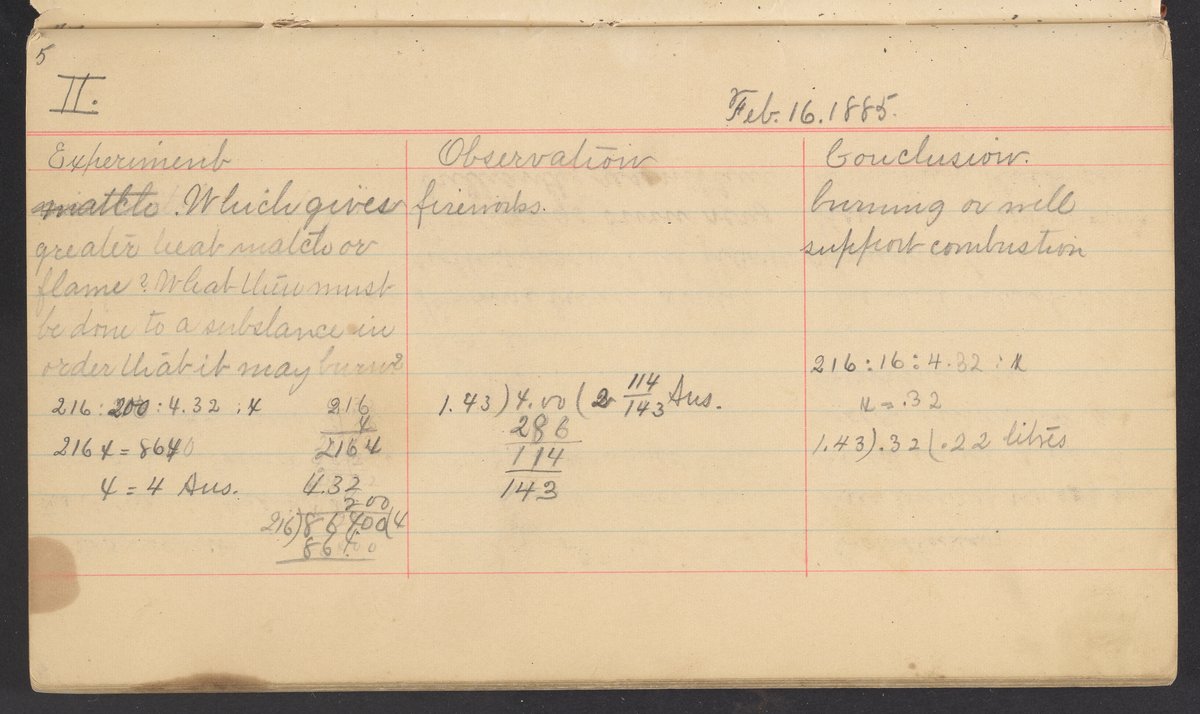 5
II.
Feb. 16. 1885.
Experiment
match. Which gives
greater heat match or
flame? What then must
be done to a substance in
order that it may burn?
216 : 200 : 4.32 : x
216 x = 8640
x = 4 Ans.
216
4
216 x
4.32
200
216)86400(4
864
Observation
fireworks.
1.43)4.00(2 114/143 Ans.
286
114
143
Conclusion.
burning or will
support combustion
216 : 16 : 4.32 : x
x = .32
1.43).32(.22 litres